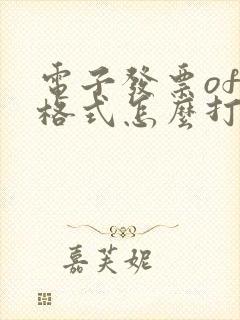 電子發票of
格式怎麼打
嘉芙妮